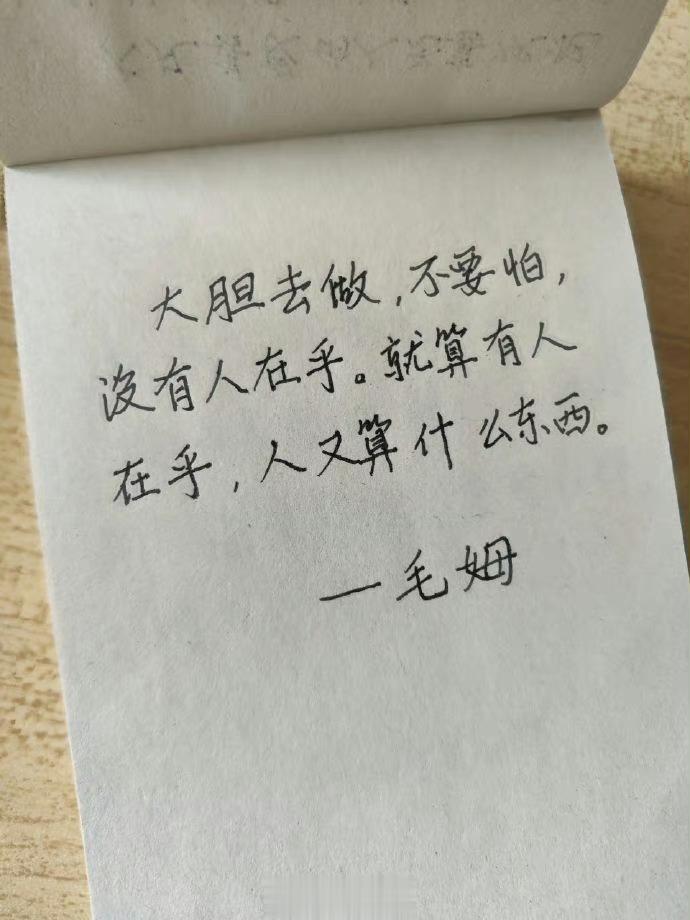 大胆去做,不要怕,
没有人在乎。就算有人
在乎,人又算什么东西。
—毛姆